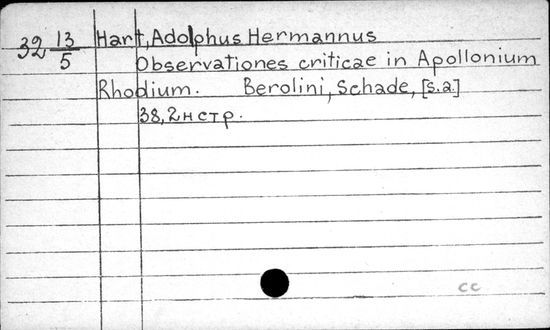 32 13/5 Hart, Adolphus Hermannus
Observationes criticae in Apollonium
Rhodium. Berolini, Schade, [s.a.]
38, 2 н стр.
cc